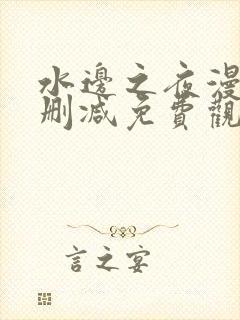 水邊之夜漫
刪減免費觀
言之宴